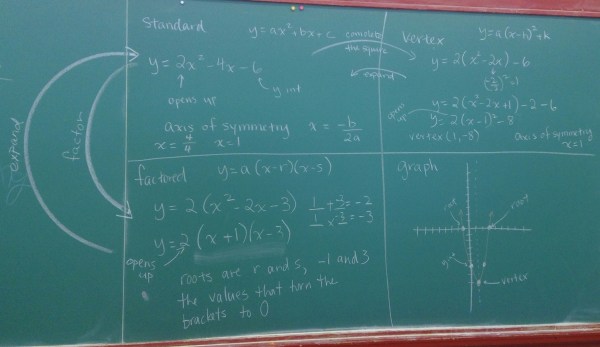 expand
factor
Standard y=ax²+bx+c
y=2x²-4x-6
opens up
y int
axis of symmetry x = -b/2a
x = 4/4 x=1
complete
the square
expand
Vertex y=a(x-h)²+k
y=2(x²-2x)-6
(2/2)²=1
opens
up
y=2(x²-2x+1)-2-6
y=2(x-1)²-8
vertex (1,-8)
axis of symmetry
x=1
factored y=a(x-r)(x-s)
y=2(x²-2x-3) 1 + -3 = -2
1 x -3 = -3
y=2(x+1)(x-3)
opens
up
roots are r and s, -1 and 3
the values that turn the
brackets to 0
graph
root
root
vertex